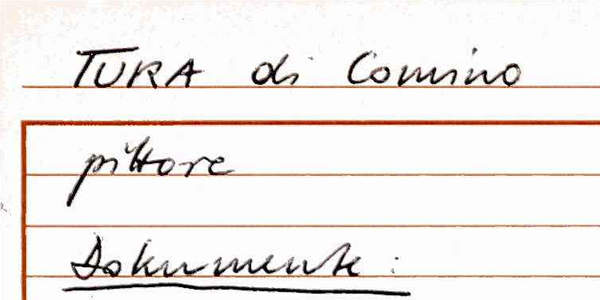 TURA di Comino
pittore
Dokumente: